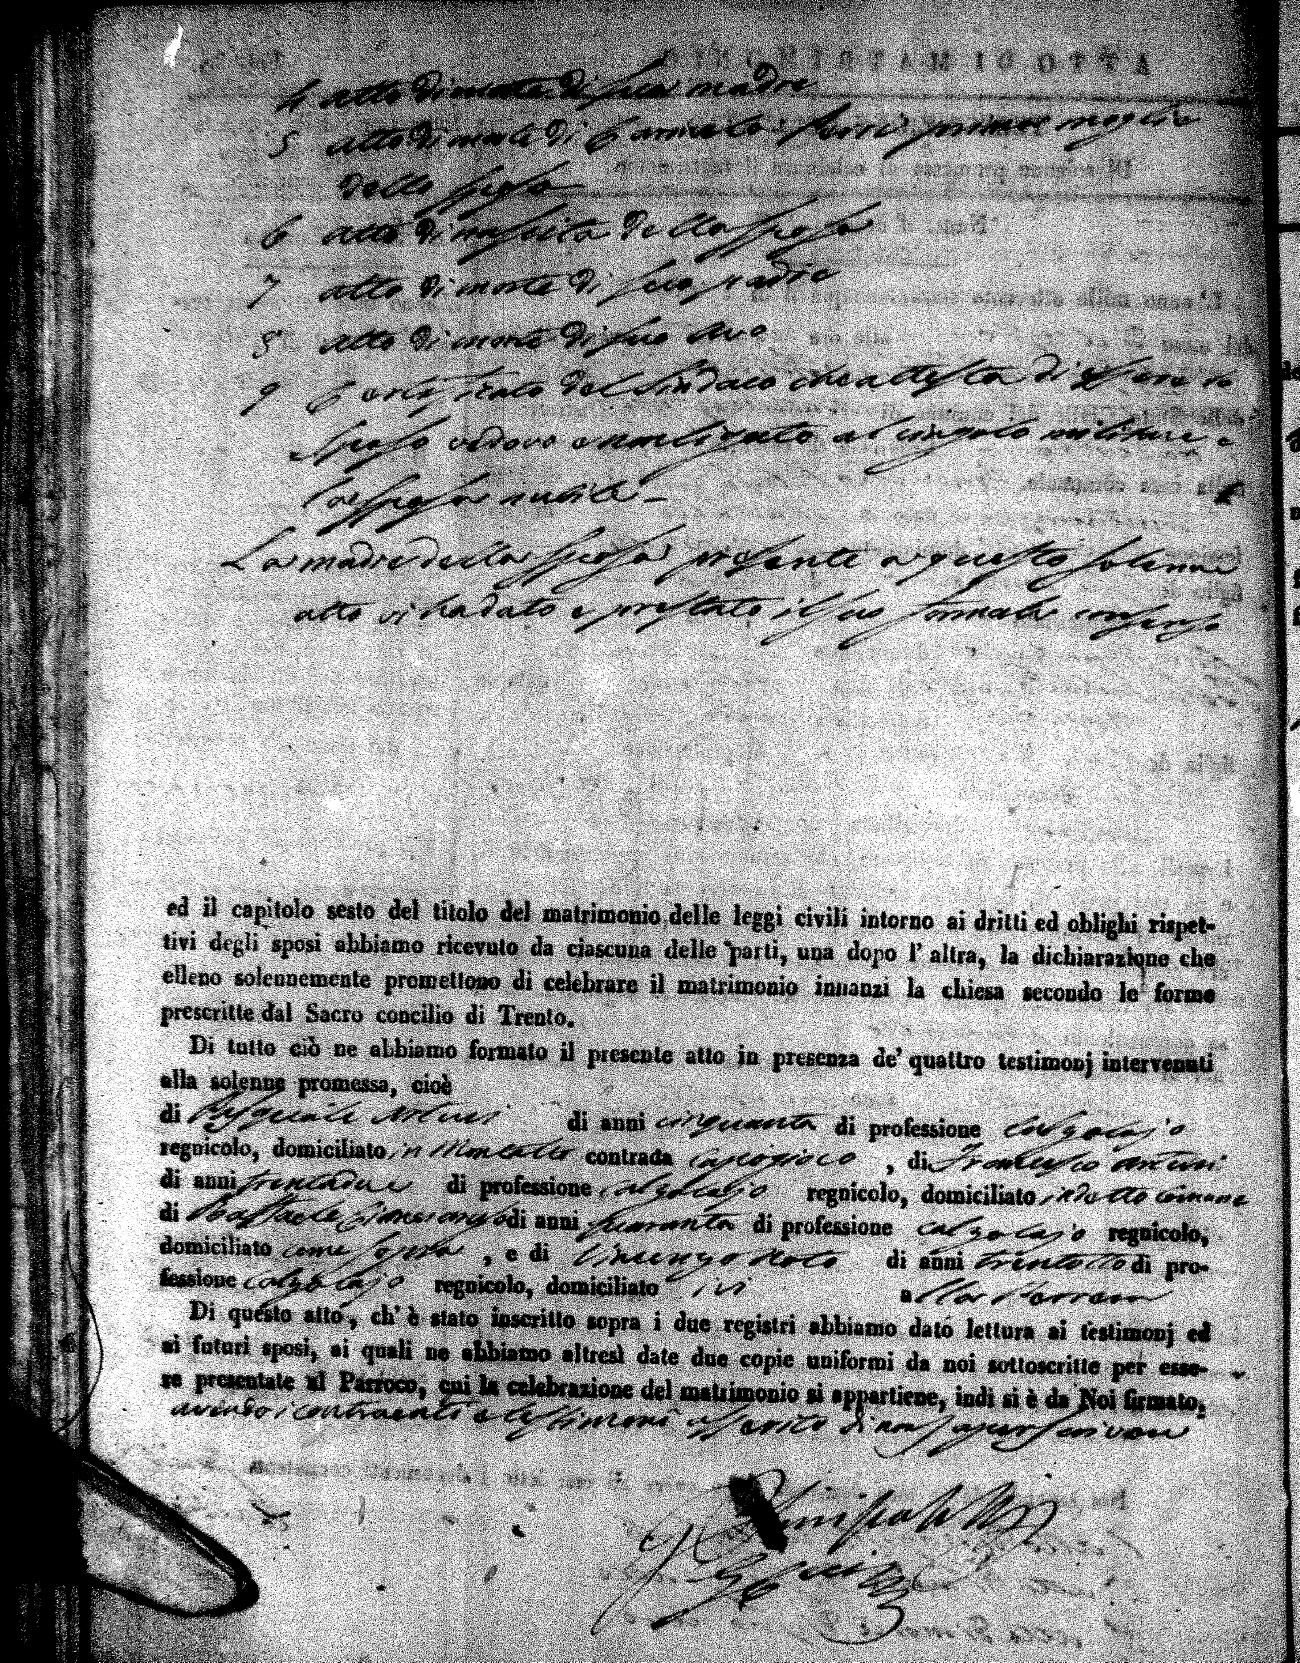 4 atto di morte di sua madre
5 atto di morte di Carmela primo moglie
dello sposo
6 atto di nascita della sposa
7 atto di morte di suo padre
8 atto di morte di suo Avo
9 Certificato del Sindaco che attesta di essere lo
sposo vedovo e al cingolo militare e
la sposa nubile –
La madre della sposa presente a questo solenne
atto vi ha dato e prestato il suo formale consenso
ed il capitolo sesto del titolo del matrimonio delle leggi civili intorno ai dritti ed oblighi rispet-
tivi degli sposi abbiamo ricevuto da ciascuna delle parti, una dopo l' altra, la dichiarazione che
elleno solennemente promettono di celebrare il matrimonio innanzi la chiesa secondo le forme
prescritte dal Sacro concilio di Trento.
Di tutto ciò ne abbiamo formato il presente atto in presenza de' quattro testimonj intervenuti
alla solenne promessa, cioè
di Pasquale di anni cinquanta di professione calzolajo
regnicolo, domiciliato in Montalto contrada , di Francesco
di anni trentadue di professione calzolajo regnicolo, domiciliato in detto comune
di Raffaele di anni quaranta di professione calzolajo regnicolo,
domiciliato come sopra , e di Vincenzo Noto di anni trentotto di pro-
fessione calzolajo regnicolo, domiciliato ivi alla
Di questo atto, ch' è stato inscritto sopra i due registri abbiamo dato lettura ai testimonj ed
ai futuri sposi, ai quali ne abbiamo altresì date due copie uniformi da noi sottoscritte per esse-
re presentate al Parroco, cui la celebrazione del matrimonio si appartiene, indi si è da Noi firmato,
avendo i contraenti e testimoni asserito di non saper scrivere